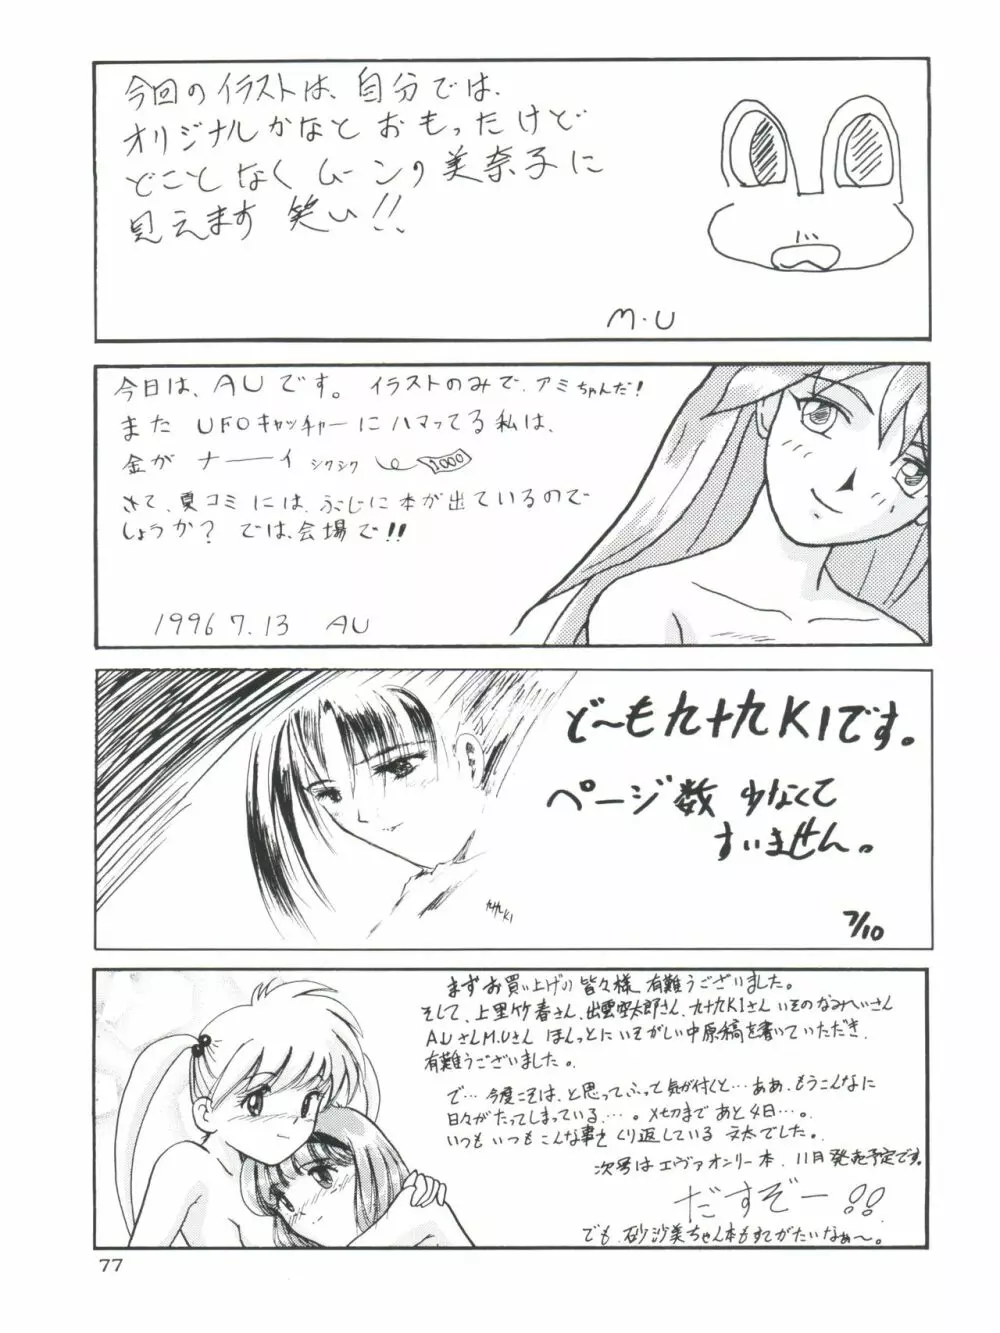 今回のイラストは、自分では、
オリジナルかなとおもったけど
どことなくムーンの美奈子に
見えます 笑い!!
M.U
今日は、AUです。イラストのみで、アミちゃんだ!
また UFOキャッチャーにハマってる私は、
金がナ――イ シクシク 1000
さて、夏コミには、ぶじに本が出ているので
しょうか? では、会場で!!
1996 7.13 AU
ど〜も九十九KIです。
ページ数 少なくて
すいません。
九十九KI
7/10
まずお買い上げの皆々様、有難うございました。
そして、上里竹春さん、出雲空太郎さん、九十九KIさん いそのなみへいさん
A.UさんM.Uさん ほんっとにいそがしい中原稿を書いていただき、
有難うございました。
で…今度こそは、と思ってふって気が付くと…ああ、もうこんなに
日々がたってしまっている…。〆切まであと4日…。
いつもいつもこんな事をくり返している 文太でした。
次号はエヴァオンリー本、11月発売予定です。
だすぞー!!
でも、砂沙美ちゃん本もすてがたいなぁ〜。
77